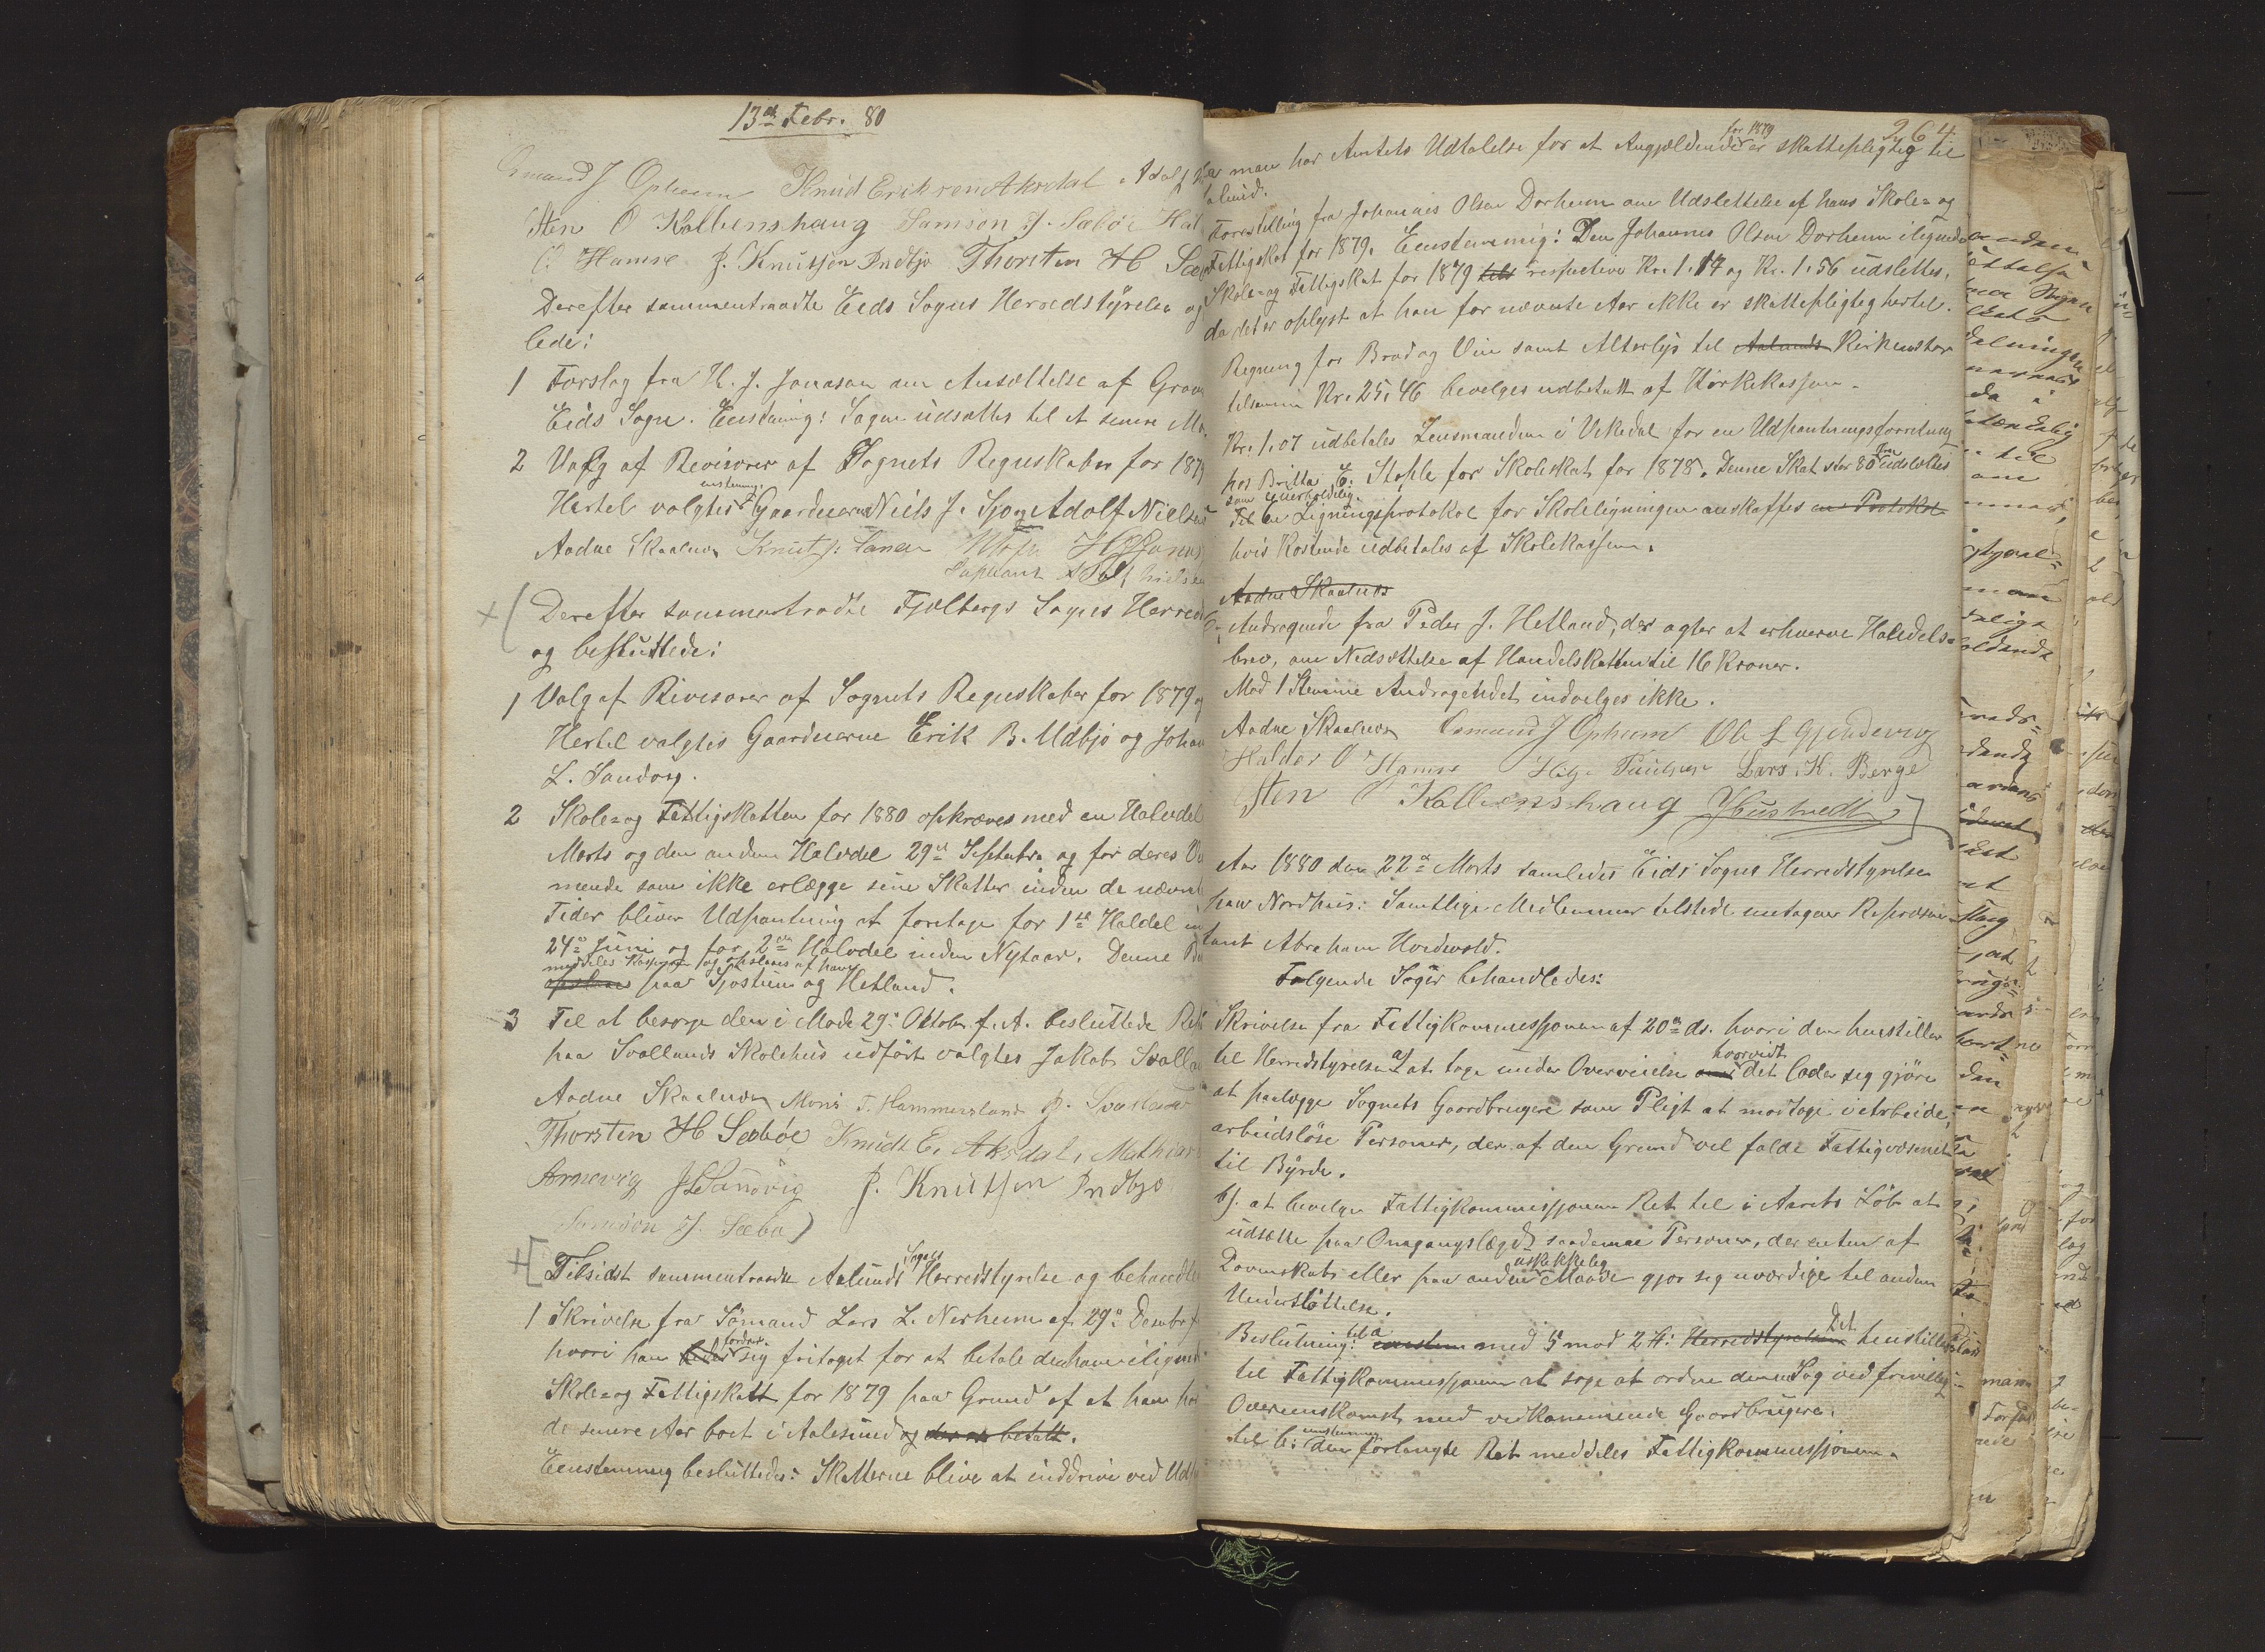 13de Febr. 80
Osmund J Opheim Knud Eriksen Aksdal Adolf
Sten O Kallenshaug Samson J. Sæbøe Hal
O. Hamre J. Knutsen Indbjo Thorsten H Sæ
Derefter sammentraadte Eeds Sogns Herredstyrelse og
lede:
1 Forslag fra H. J. Jonassen om Ansættelse af Grav
Eids Sogn. Eenstemig: Sagen udsættes til et senere Mø
2 Valg af Revisorer af Sognets Regnskaber for 1879
enstemig.
Hertil valgtes Gaardmænd Niels J. Sjo og Adolf Nielsen
Aadne Skaalnes Knut J. Tanen
Stephans Adolf Nielsen
+ Derefter sammentraadte Fjelbergs Sogns Herred
og besluttede:
1 Valg af Rivisorer af Sognets Regnskaber for 1879 og
Hertil valgtes Gaardmænd Erik B. Udbjo og Johan
L. Sandvig.
2 Skole= og Fattigskatten for 1880 opkræves med en Halvdel
Marts og den anden Halvdel 29de Septembr. og for deres Ve
mende som ikke erlægge sine Skatter inden de nævnte
Tider bliver Udpantning at foretage for 1ste Haldel in
24de Juni og for 2den Halvdel inden Nytaar. Denne Be
meddeles Kasseren og opslaaes af ham
opslaaes paa Sjostrum og Hetland.
3 Til at besorge den i Møde 29de Oktobr. f. A. besluttede Re
paa Svollands Skolehus udført valgtes Jakob Svolla
Aadne Skaalnes Mons T. Hammersland J. Svolland
Thorsten H Sæbøe Knudt E. Aksdal, Mathias
Arnevig J L Sandvig J. Knutsen Indbjo
Samson J. Sæbø
+ Tilsidst sammentraadte Aalunds Sogns Herredstyrelse og behandle
1 Skrivelse fra Sømand Lars L. Nerheim af 29de Desembr. f
fordrer
hvori han beder sig fritaget for at betale den ham iligned
Skole= og Fattigskatt for 1879 paa Grund af at han ha
de senere Aar boet i Aalesund og der at betalt.
Eenstemmig besluttedes: Skatterne blive at inddrive ved Ud
264
for 1879
man har Amtets Udtalelse for at Angjældende er skattepligtig til
Aalund.
Forestilling fra Johannes Olsen Dorheim om Udslettelse af hans Skole= og
Fattigskat for 1879. Eenstemmig: Den Johannes Olsen Dorheim ilignede
Skole= og Fattigskat for 1879 respective Kr. 1.17 og Kr. 1.56 udslettes,
da det er oplyst at han for nævnte Aar ikke er skattepligteg hertil.
Regning for Brød og Vin samt Alterlys til Aalunds Kirke stor
tilsamen Kr. 25,46 bevelges udbetalt af Kirkekassen.
Kr. 1.07 udbetales Lensmanden i Vikedal for en Udpantningsforretning
hos Britta E. Støhle for Skoleskat for 1878. Denne Skat stor 80 Øre udslettes
som Uerholdelig.
Til En Ligningsprotokol for Skoleligningen anskaffes en Protokol
hvis Kostende udbetales af Skolekassen.
Aadne Skaalnes
Andragende fra Peder J. Hetland, der agter at erhverve Handels=
brev, om Nedsættelse af Handelskatten til 16 Kroner.
Mod 1 Stemme Andragendet indvelges ikke.
Aadne Skaalnes Osmund J Opheim Ole L Gjerdevig
Haldor O Hamre Helge Paulsen Lars K. Berge
Sten O Kallenshaug
Aar 1880 den 22de Marts samledes Eids Sogns Herredstyrelse
paa Nordhus: Samtlige Medlemmer tilstede undtagen Repræsen
tant Abraham Hordvold.
Følgende Sager behandledes:
Skrivelse fra Fattigkommissjonen af 20de ds. hvori den henstiller
hvorvidt
til Herredstyrelsen a) at tage under Overveielse om det lader seg gjøre
at paalægge Sognets Gaardbrugere som Pligt at modtage i Arbeide,
arbeidsløse Personer, der af den Grund vel falde Fattigvæsenet
til Byrde.
b). at bevelge Fattigkommissjonen Ret til i Aarets Løb at
udsætte paa Omgangslægd saadanne Personer, der enten af
uskikkeleg
Dovenskab eller paa anden Maade gjør seg uværdige til anden
Understøttelse.
Beslutning: til a enstem med 5 mod 2 St: Herredstyrelsen Det henstilles
til Fattigkommissjonen at søge at ordne denne Sag ved frivillig
Overenskomst med vedkommende Gaardbrugere.
enstemmig
til b: den forlangte Ret meddeles Fattigkommissjonen.